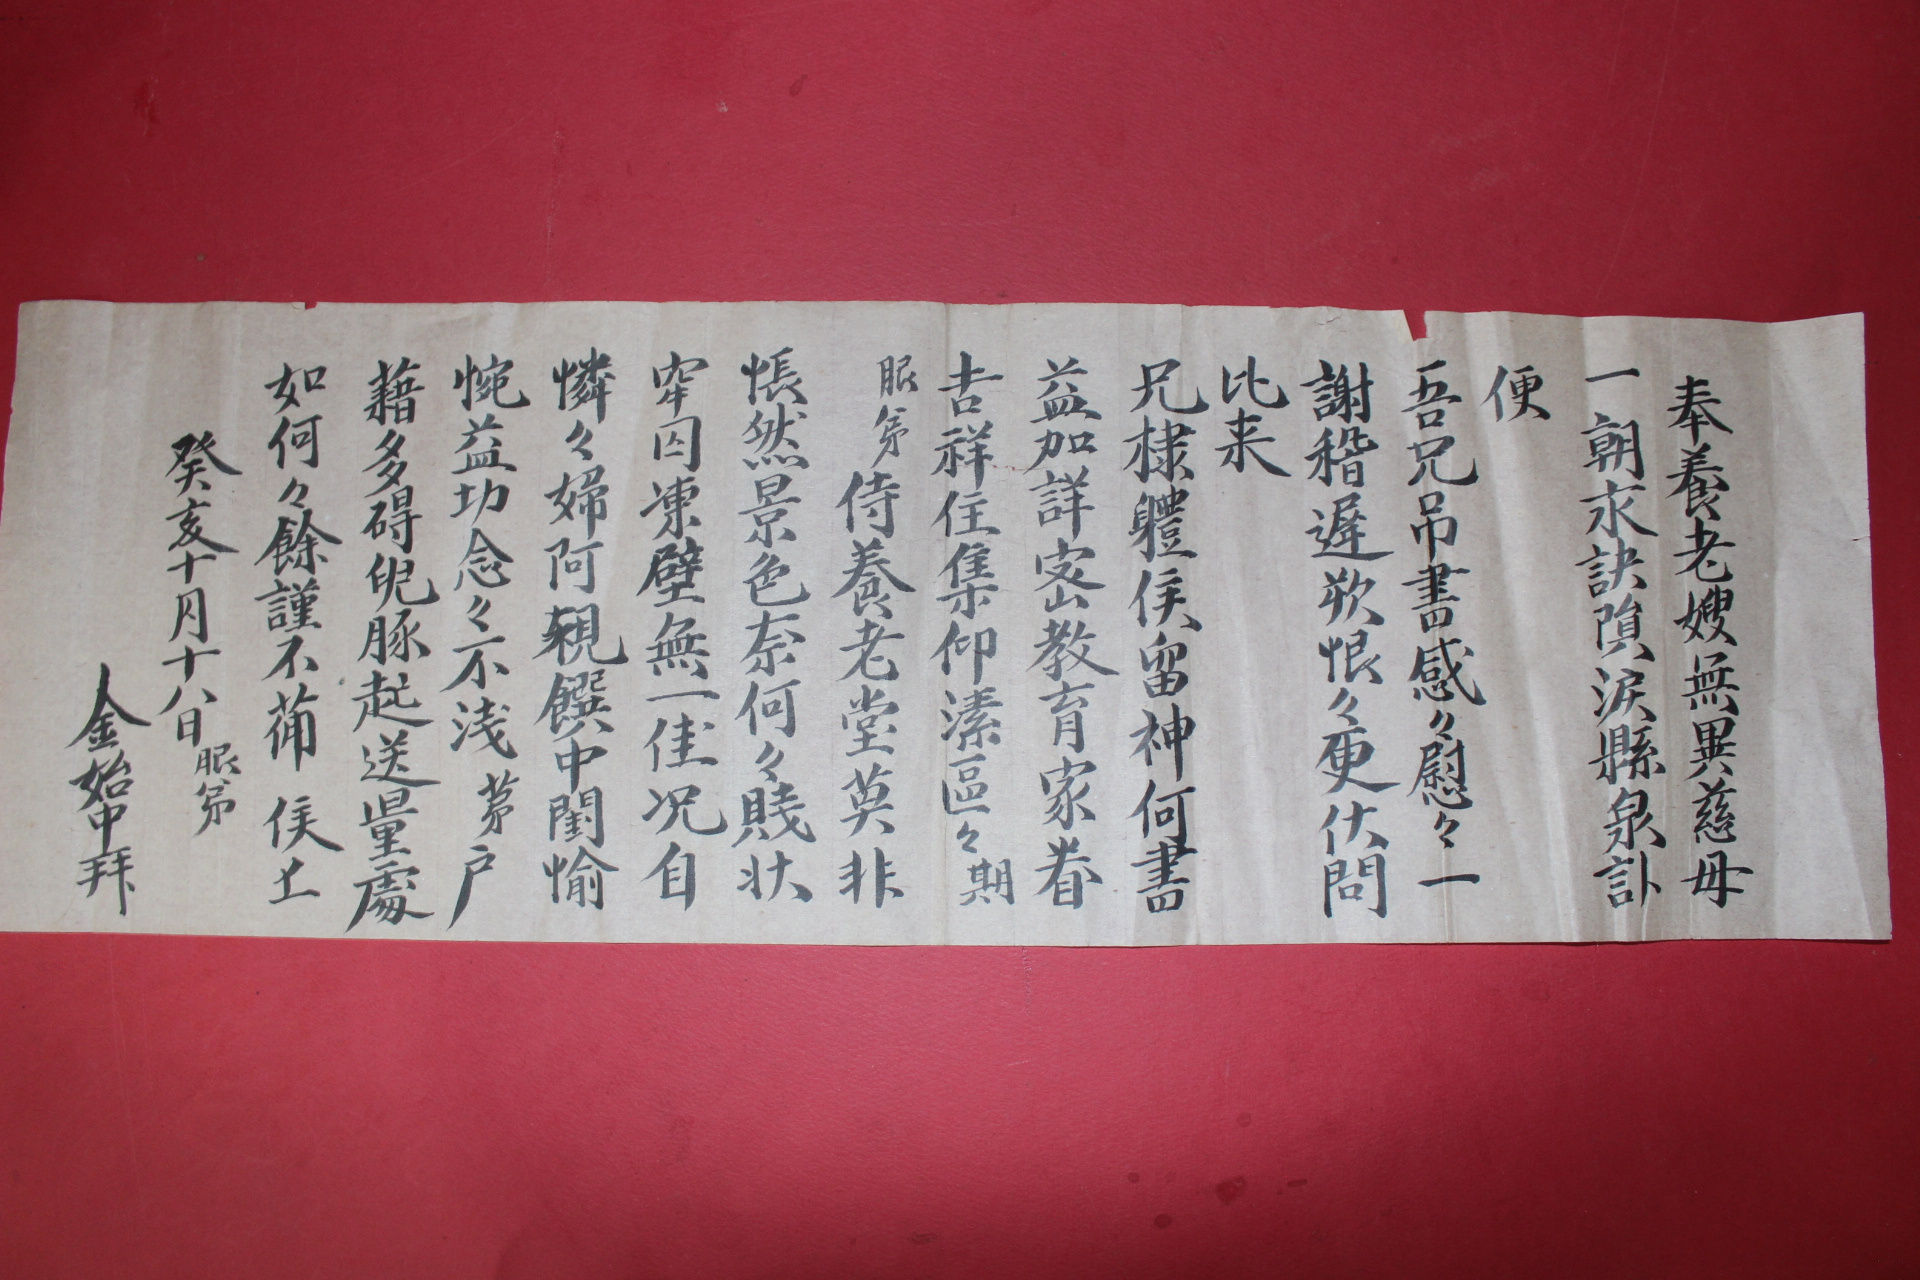 奉養老嫂無異慈母
一朝永訣隕淚縣泉訃
便
吾兄吊書感々慰々一
謝稽遲歎恨々更伏問
比来
兄棣體候留神何書
益加詳密教育家眷
吉祥住集仰溸區々期
服弟侍養老堂莫非
悵然景色奈何々賤状
窂囚凍壁無一佳况自
憐々婦阿親饌中閨愉
惋益功念々不淺茅戶
藉多碍倪豚起送量處
如何々餘謹不備候上
癸亥十月十八日服弟
金始中拜